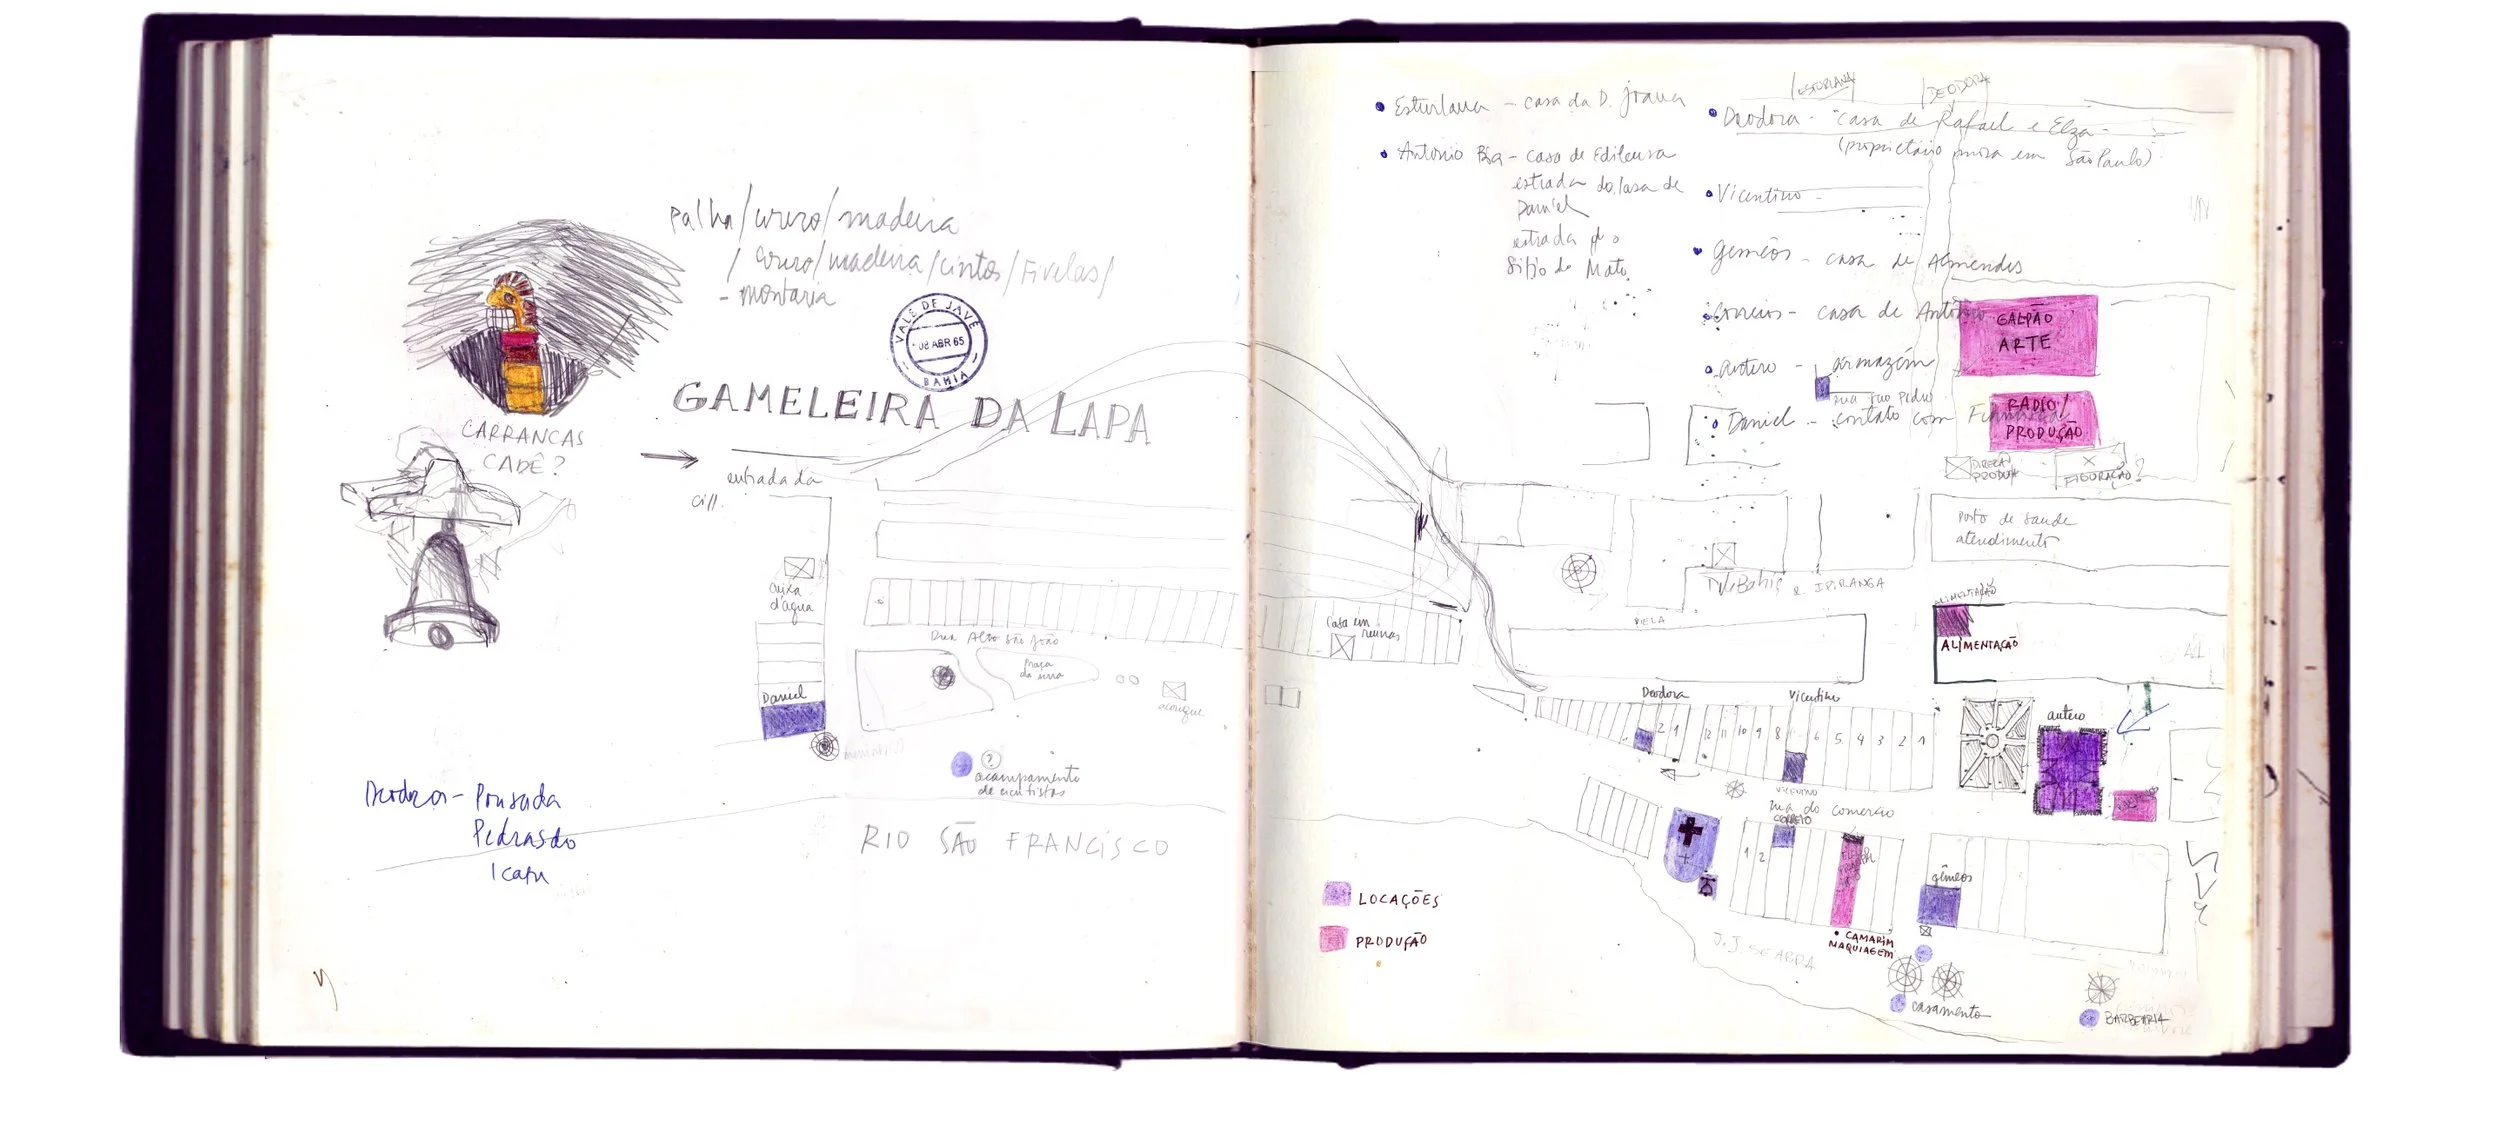 palha/couro/madeira
/ couro/madeira/cintos/Fivelas/
- montaria
VALE DE JAVÉ
08 ABR 65
BAHIA
GAMELEIRA DA LAPA
CARRANCAS
CADÊ?
entrada da
caixa
d'agua
Rua Alto São João
Praça
da
Daniel
açougue
?
acampamento
de cientistas
Deodora - Pousada
Pedras do
Icapu
RIO SÃO FRANCISCO
ESTORIANA
DEODORA
Esturlana - casa da D. Joana
Antonio Bia - casa de Edileusa
estrada da casa de
Daniel
estrada p/ o
Sitio do Mato
Deodora - casa de Rafael e Elza
(proprietário mora em São Paulo)
Vicentino -
Gemêos - casa de Almendes
Correios - casa de Antônio
Antero - armazém
rua São Pedro
Daniel - contato com
GALPÃO
ARTE
RADIO/
PRODUÇÃO
DIREÇÃO
PRODUÇÃO
FIGURAÇÃO?
Posto de saude
atendimento
TeleBahia e IPIRANGA
Casa em
ruinas
ALIMENTAÇÃO
ALIMENTAÇÃO
Deodora
Vicentino
antero
2 1
12 11 10 9 8 6 5 4 3 2 1
VICENTINO
rua do comercio
CORREIO
1 2
gêmeos
LOCAÇÕES
PRODUÇÃO
J.J SEABRA
CAMARIM
MAQUIAGEM
casamento
BARBEARIA